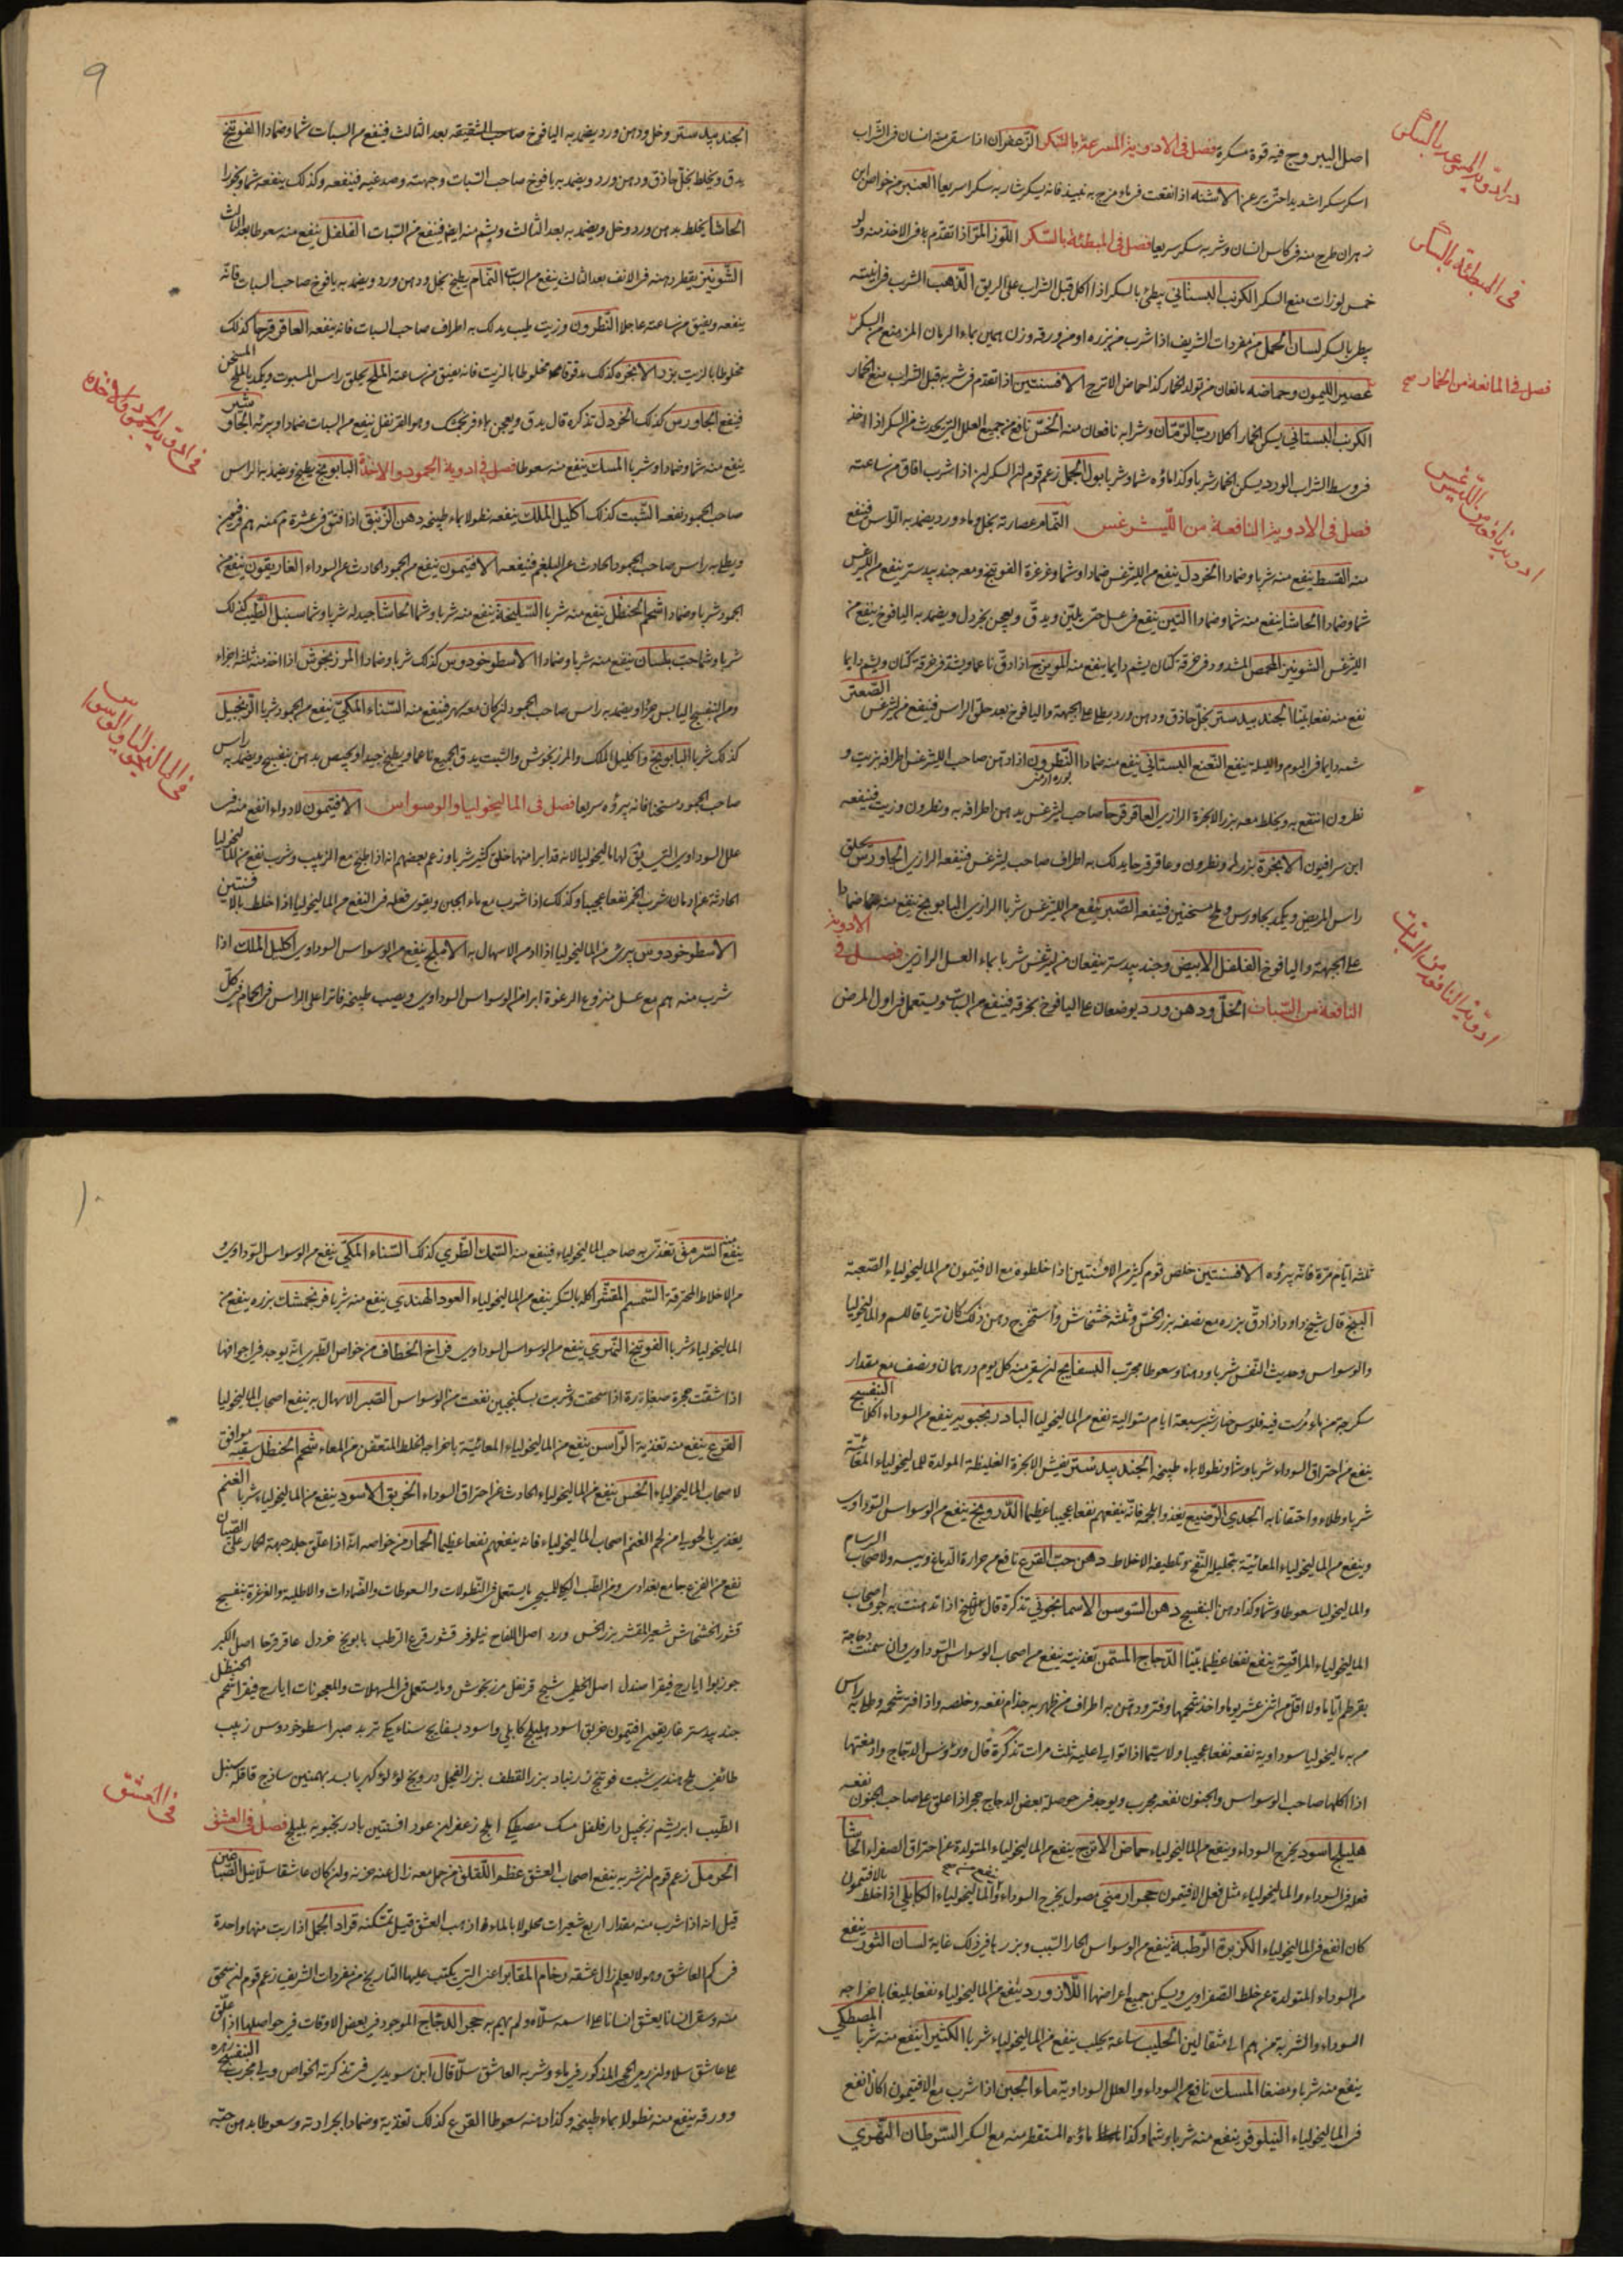 اصل اليبروح فيه قوة مسكرة فصل في الادوية المسرعة بالسكر الزعفران اذا سقي منه انسان في الشراب
اسكر سكرا شديدا حتى يرعن الاشنه اذا انقعت في ماء ومزج به نبيذ فانه يسكر شاربه سكرا سريعا العنبر من خواصه
ان طرح منه في كاس انسان وشربه سكر سريعا فصل في المبطئة بالسكر اللوز المر اذا تقدم باخذ منه
خمس لوزات منع السكر الكرنب البستاني يبطئ بالسكر اذا اكل قبل الشراب على الريق الذهب الشرب في انيته
يبطئ بالسكر لسان الحمل من مفردات الشريف اذا شرب من بزره او من ورقه وزن درهمين بماء الرمان المز منع من السكر
فصل في المانعة من الخمار صح
عصير الليمون وحماضه مانعان من تولد الخمار كذا حماض الاترج الافسنتين اذا تقدم في شربه قبل الشراب منع الخمار
الكرنب البستاني يسكن الخمار اكلا رب الرمان وشرابه نافعان منه الخس نافع من جميع العلل التي تحدث من السكر اذا اخذ
في وسط الشراب الورد يسكن الخمار شربا وكذا ماؤه شما وشربا بول الجمل زعم قوم ان السكران اذا شرب افاق من ساعته
فصل في الادوية النافعة من الليثرغس النمام عصارته بخل وماء ورد يضمد به الراس فينفع
منه القسط ينفع منه شربا وضمادا الخردل ينفع من الليثرغس ضمادا وشما وغرغرة الفوتنج ومعه جندبيدستر ينفع من الليثرغس
شما وضمادا الحاشا ينفع منه شما وضمادا التين ينقع في عسل حتى يلين ويدق ويعجن بخردل ويضمد به اليافوخ ينفع من
الليثرغس الشونيز المحمص المشدود في خرقة كتان يشم دايما ينفع منه المويزج اذا دق ناعما ويشد في خرقة كتان ويشم دايما
نفع منه نفعا بينا الجندبيدستر بخل حاذق ودهن ورد يطلى على الجبهة واليافوخ بعد حلق الراس فينفع من ليثرغس الصعتر
شمه دايما في اليوم والليلة ينفع النعنع البستاني ينفع منه ضمادا النطرون اذا دهن صاحب الليثرغس اطرافه بزيت و
نطرون انتفع به ويخلط معه بزر الانجرة الرازي العاقرقرحا صاحب ليثرغس يدهن اطرافه به ونطرون وزيت فينفعه
ابن سرافيون الانجرة بزرها ونطرون وعاقرقرحا يدلك به اطراف صاحب ليثرغس فينفعه الرازي الجاورس يحلق
راس المريض ويكمد بجاورس وملح مسخنين فينفعه الصبر ينفع من الليثرغس شربا الرازي البابونج ينفع منه ضمادا
على الجبهة واليافوخ الفلفل الابيض وجندبيدستر ينفعان من ليثرغس شربا بماء العسل الرازي فصل في الادوية
النافعة من السبات الخل ودهن ورد يوضعان على اليافوخ بخرقة فينفع من السبات ويستعمل في اول المرض
في المبطئة بالسكر
ادوية النافعة من السبات
٩
الجندبيدستر وخل ودهن ورد يضمد به اليافوخ صاحب الشقيقه بعد الثالث فينفع من السبات شما وضمادا الفوتنج
يدق ويخلط بخل حاذق ودهن ورد ويضمد به يافوخ صاحب السبات وجبهته وصدغيه فينفعه وكذلك ينفعه شما وبخورا
الحاشا يخلط بدهن ورد وخل ويضمد به بعد الثالث ويشم منه ايضا فينفع من السبات الفلفل ينفع منه سعوطا بعد الثالث
الشونيز يقطر دهنه في الانف بعد الثالث ينفع من السبات النمام يطبخ بخل ودهن ورد ويضمد به يافوخ صاحب السبات فانه
ينفعه ويفيق من ساعته عاجلا النطرون وزيت طيب يدلك به اطراف صاحب السبات فانه ينفعه العاقرقرحا كذلك
مخلوطا بالزيت بزر الانجره كذلك مدقوقا مخلوطا بالزيت فانه يفيق من ساعته الملح يحلق راس المسبوت ويكمد بالملح المسخن
فينفع الجاورس كذلك الخردل تذكره قال يدق ويعجن بماء فرنجمشك وهو القرنفل ينفع من السبات ضمادا ويبرئه الجاوشير
ينفع منه شما وضمادا وشربا المسك ينفع منه سعوطا فصل في ادوية الجمود والاخذة البابونج يطبخ ويضمد به الراس
صاحب الجمود نفعه الشبت كذلك اكليل الملك ينفعه نطولا بماء طبيخه دهن الزنبق اذا فتق في عشرة دراهم منه درهم فرفيون
ويطلى به راس صاحب الجمود الحادث عن البلغم فينفعه الافتيمون ينفع من الجمود الحادث عن السوداء الغاريقون ينفع من
الجمود شربا وضمادا شحم الحنظل ينفع منه شربا السليخة ينفع منه شربا وشما الحاشا جيد له شربا وشما سنبل الطيب كذلك
شربا وشما حب بلسان ينفع منه شربا وضمادا الاسطوخودوس كذلك شربا وضمادا المرزنجوش اذا اخذ منه ثلثة اجزاء
ومن البنفسج اليابس جزؤا ويضمد به راس صاحب الجمود ان كان معه سهر فينفع منه السناء المكي ينفع من الجمود شربا الزنجبيل
كذلك شربا البابونج واكليل الملك والمرزنجوش والشبت يدق الجميع ناعما ويطبخ جيدا ويحبص بدهن بنفسج ويضمد به راس
صاحب الجمود مسخنا فانه يبرؤه سريعا فصل في الماليخوليا والوسواس الافتيمون لا دواء انفع منه في
علل السوداوي التي يقال لها ماليخوليا لانه قد ابرا منها خلق كثير شربا وزعم بعضهم انه اذا طبخ مع الزبيب وشرب نفع من الماليخوليا
الحادثة عن ادمان شرب الخمر نفعا عجيبا وكذلك اذا شرب مع ماء الجبن ويقوى فعله في النفع من الماليخوليا اذا خلط بالافسنتين
الاسطوخودوس يبرئ من الماليخوليا اذا ادمن الاسهال به الاملج ينفع من الوسواس السوداوي اكليل الملك اذا
شرب منه درهم مع عسل منزوع الرغوة ابرا من الوسواس السوداوي ويصب طبيخه فاترا على الراس في الحمام في كل
في الماليخوليا والوسواس
ثلثة ايام مرة فانه يبرؤه الافسنتين خلص قوم كثير من الافسنتين اذا خلطوه مع الافتيمون من الماليخولياء الصعبة
البنج قال شيخ داود اذا دق بزره مع نصفه بزر الخس وثلثه خشخاش واستخرج دهن ذلك كان ترياقا للسهر والماليخوليا
والوسواس وحديث النفس شربا ودهنا وسعوطا مجرب البسفايج ان سقي منه كل يوم درهمان ونصف مع مقدار
سكرجة من ماء مرست فيه فلوس خيارشنبر سبعة ايام متوالية نفع من الماليخوليا البادرنجبويه ينفع من السوداء اكلا البنفسج
ينفع من احتراق السوداء شربا وشما ونطولا بماء طبيخه الجندبيدستر يفش الابخرة الغليظة المولدة للماليخولياء المعائية
شربا وطلاء واحتقانا به الجدي الرضيع يغذوا لحمه فانه ينفعهم نفعا عجيبا عظيما الدرونج ينفع من الوسواس السوداوي
وينفع من الماليخولياء المعائية بتحليل النفخ وتلطيفه الاخلاط دهن حب القرع نافع من حرارة الدماغ ويبسه ولاصحاب البرسام
والماليخوليا سعوطا وشما وكذا دهن البنفسج دهن السوسن الاسمانجوني تذكرة قال الشيخ اذا تدهنت به جوف اصحاب
الماليخولياء المراقية ينفع نفعا عظيما بينا الدجاج المسمن تغذيته ينفع من اصحاب الوسواس السوداوي وان سمنت دجاجة
بقرطم اياما ولا اقل من اثنى عشر يوما واخذ شحمها وفتر ودهن به اطراف من ظهر به جذام نفعه وخلصه واذا فتر شحمه وطلي به راس
من به ماليخوليا سوداوية نفعه نفعا عجيبا ولا سيما اذا توالى عليه ثلث مرات تذكرة قال ورؤوس الدجاج وادمغتها
اذا اكلها صاحب الوسواس والجنون نفعه مجرب ويوجد في حوصلة بعض الدجاج حجر اذا علق على صاحب الجنون نفعه
هليلج اسود يخرج السوداء وينفع من الماليخولياء حماض الاترج ينفع من الماليخولياء المتولدة عن احتراق الصفراء الحاشا
فعله في السوداء والماليخولياء مثل فعل الافتيمون حجر ارمني مغسول يخرج السوداء والماليخولياء الكابلي اذا خلط بالافتيمون
كان انفع في الماليخولياء الكزبرة الرطبة ينفع من الوسواس الحار السبب وبزرها في ذلك غاية لسان الثور ينفع
من السوداء المتولدة عن خلط الصفراوي ويسكن جميع اعراضها اللازورد ينفع من الماليخولياء نفعا بليغا باخراجه
السوداء والشربة من درهم الى مثقال لبن الحليب ساعة يحلب ينفع من الماليخولياء شربا الكثيرا ينفع منه شربا المصطكي
ينفع منه شربا ومضغا المسك نافع من السوداء والعلل السوداوية ماء الجبن اذا شرب مع الافتيمون كان انفع
في الماليخولياء النيلوفر ينفع منه شربا وشما وكذا ماؤه المستقطر منه مع السكر السرطان النهري
١٠
ينفع منه السرمق تغذى به صاحب الماليخولياء فينفع منه السمك الطري كذلك السناء المكي ينفع من الوسواس السوداوي و
من الاخلاط المحترقة السمسم المقشر اكله بالسكر ينفع من الماليخولياء العود الهندي ينفع منه شربا فرنجمشك بزره ينفع من
الماليخولياء شربا الفوتنج النهري ينفع من الوسواس السوداوي فراخ الخطاف من خواص الطبري انه يوجد في اجوافها
اذا شقت حجرة صغارة اذا سحقت وشربت بسكنجبين نفعت من الوسواس الصبر الاسهال به ينفع اصحاب الماليخوليا
القرع ينفع منه تغذية الراسن ينفع من الماليخولياء المعائية باخراجه الخلط المتعفن من المعاء شحم الحنظل سقيه موافق
لاصحاب الماليخولياء الخس ينفع من الماليخولياء الحادث عن احتراق السوداء الخربق الاسود ينفع من الماليخولياء شربا الغنم
يغذي بالحولي من لحم الغنم اصحاب الماليخولياء فانه ينفعهم نفعا عظيما الحمار من خواصه انه اذا علق جلد جبهة الحمار على الصبيان
نفع من الفزع جامع بغدادي ومن الطب الكيميا للمسيحي ما يستعمل في النطولات والسعوطات والضمادات والاطلية والغرغرة بنفسج
قشور الخشخاش شعير المقشر بزر الخس ورد اصل اللفاح نيلوفر قشور قرع الرطب بابونج خردل عاقرقرحا اصل الكبر
جوزبوا ايارج فيقرا صندل اصل الخطمي شيح قرنفل مرزنجوش وما يستعمل في المسهلات والمعجونات ايارج فيقرا شحم الحنظل
جندبيدستر غاريقون افتيمون خربق اسود هليلج كابلي واسود بسفايج سناء مكي تربد صبر اسطوخودوس زبيب
طائفي ملح هندي شبت فوتنج زرنباد بزر القطف بزر الفجل درونج لؤلؤ كهربا بسد بهمنين ساذج قاقله سنبل
الطيب ابريشم زنجبيل دارفلفل مسك مصطكي املج زعفران عود افسنتين بادرنجبويه بليلج فصل في العشق
الحرمل زعم قوم ان شربه ينفع اصحاب العشق عظم اللقلق من حمل معه زال عنه حزنه وان كان عاشقا سلا نيل الصباغين
قيل انه اذا شرب منه مقدار اربع شعيرات محلولا بالماء اذهب العشق قيل تسكنه قراد الجمل اذا ربت منها واحدة
في كم العاشق وهو لا يعلم زال عشقه رخام المقابر اعني التي يكتب عليها التاريخ من مفردات الشريف زعم قوم ان سحق
منه وسقي انسانا يعشق انسانا على اسمه سلاه ولم يهم به حجر الدجاج الموجود في بعض الاوقات في حواصلها اذا علق
على عاشق سلا وان رمي الحجر المذكور في ماء وشربه العاشق سلا قال ابن سويدي في تذكرته الخواص وهي مجرب البنفسج زهره
وورقه ينفع منه نطولا بماء طبيخه وكذا دهنه سعوطا القرع كذلك تغذية وضمادا بجرادته وسعوطا بدهن حبه
في العشق